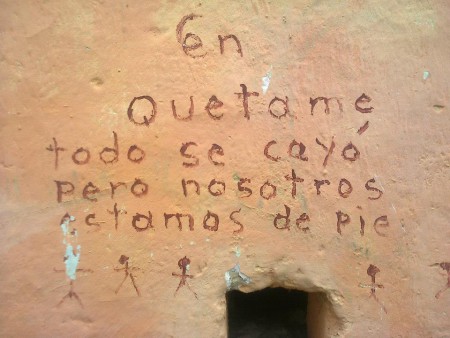 En
Quetame
todo se cayó
pero nosotros
estamos de pie